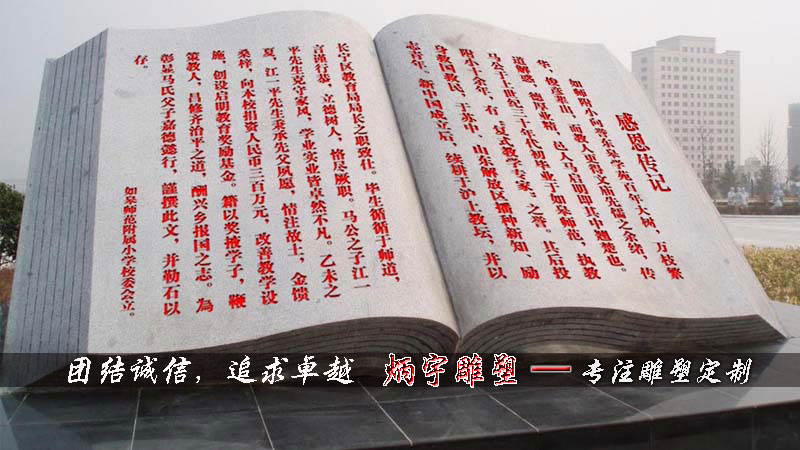 感恩传记
如师附小向誉东皋学苑百年大树，万枝繁
华，俊彦辈出，而教人更得文庙先儒之余绪，传
道解惑，德厚业精。邑人马启明即其中翘楚也。
马公于上世纪三十年代初毕业于如皋师范，执教
附小十余年，有“复式教学专家”之誉。其后投
身救国救民，于苏中、山东解放区播种新知、励
志青年。新中国成立后，续耕于沪上教坛，并以
长宁区教育局局长之职致仕。毕生循循于师道，
言谨行恭，立德树人，恪尽厥职。马公之子江一
平先生克守家风，学业实业皆卓然不凡。乙未之
夏，江一平先生秉承先父夙愿，情注故土，金馈
桑梓，向本校捐资人民币三百万元，改善教学设
施，创设启明教育奖励基金。籍以奖掖学子，鞭
策教人，吕修齐治平之道，酬兴乡报国之志。為
彰显马氏父子嘉德懿行，謹撰此文，并勒石以
存。
如皋师范附属小学校委会立。
团结诚信，追求卓越 炳宇雕塑 — 专注雕塑定制